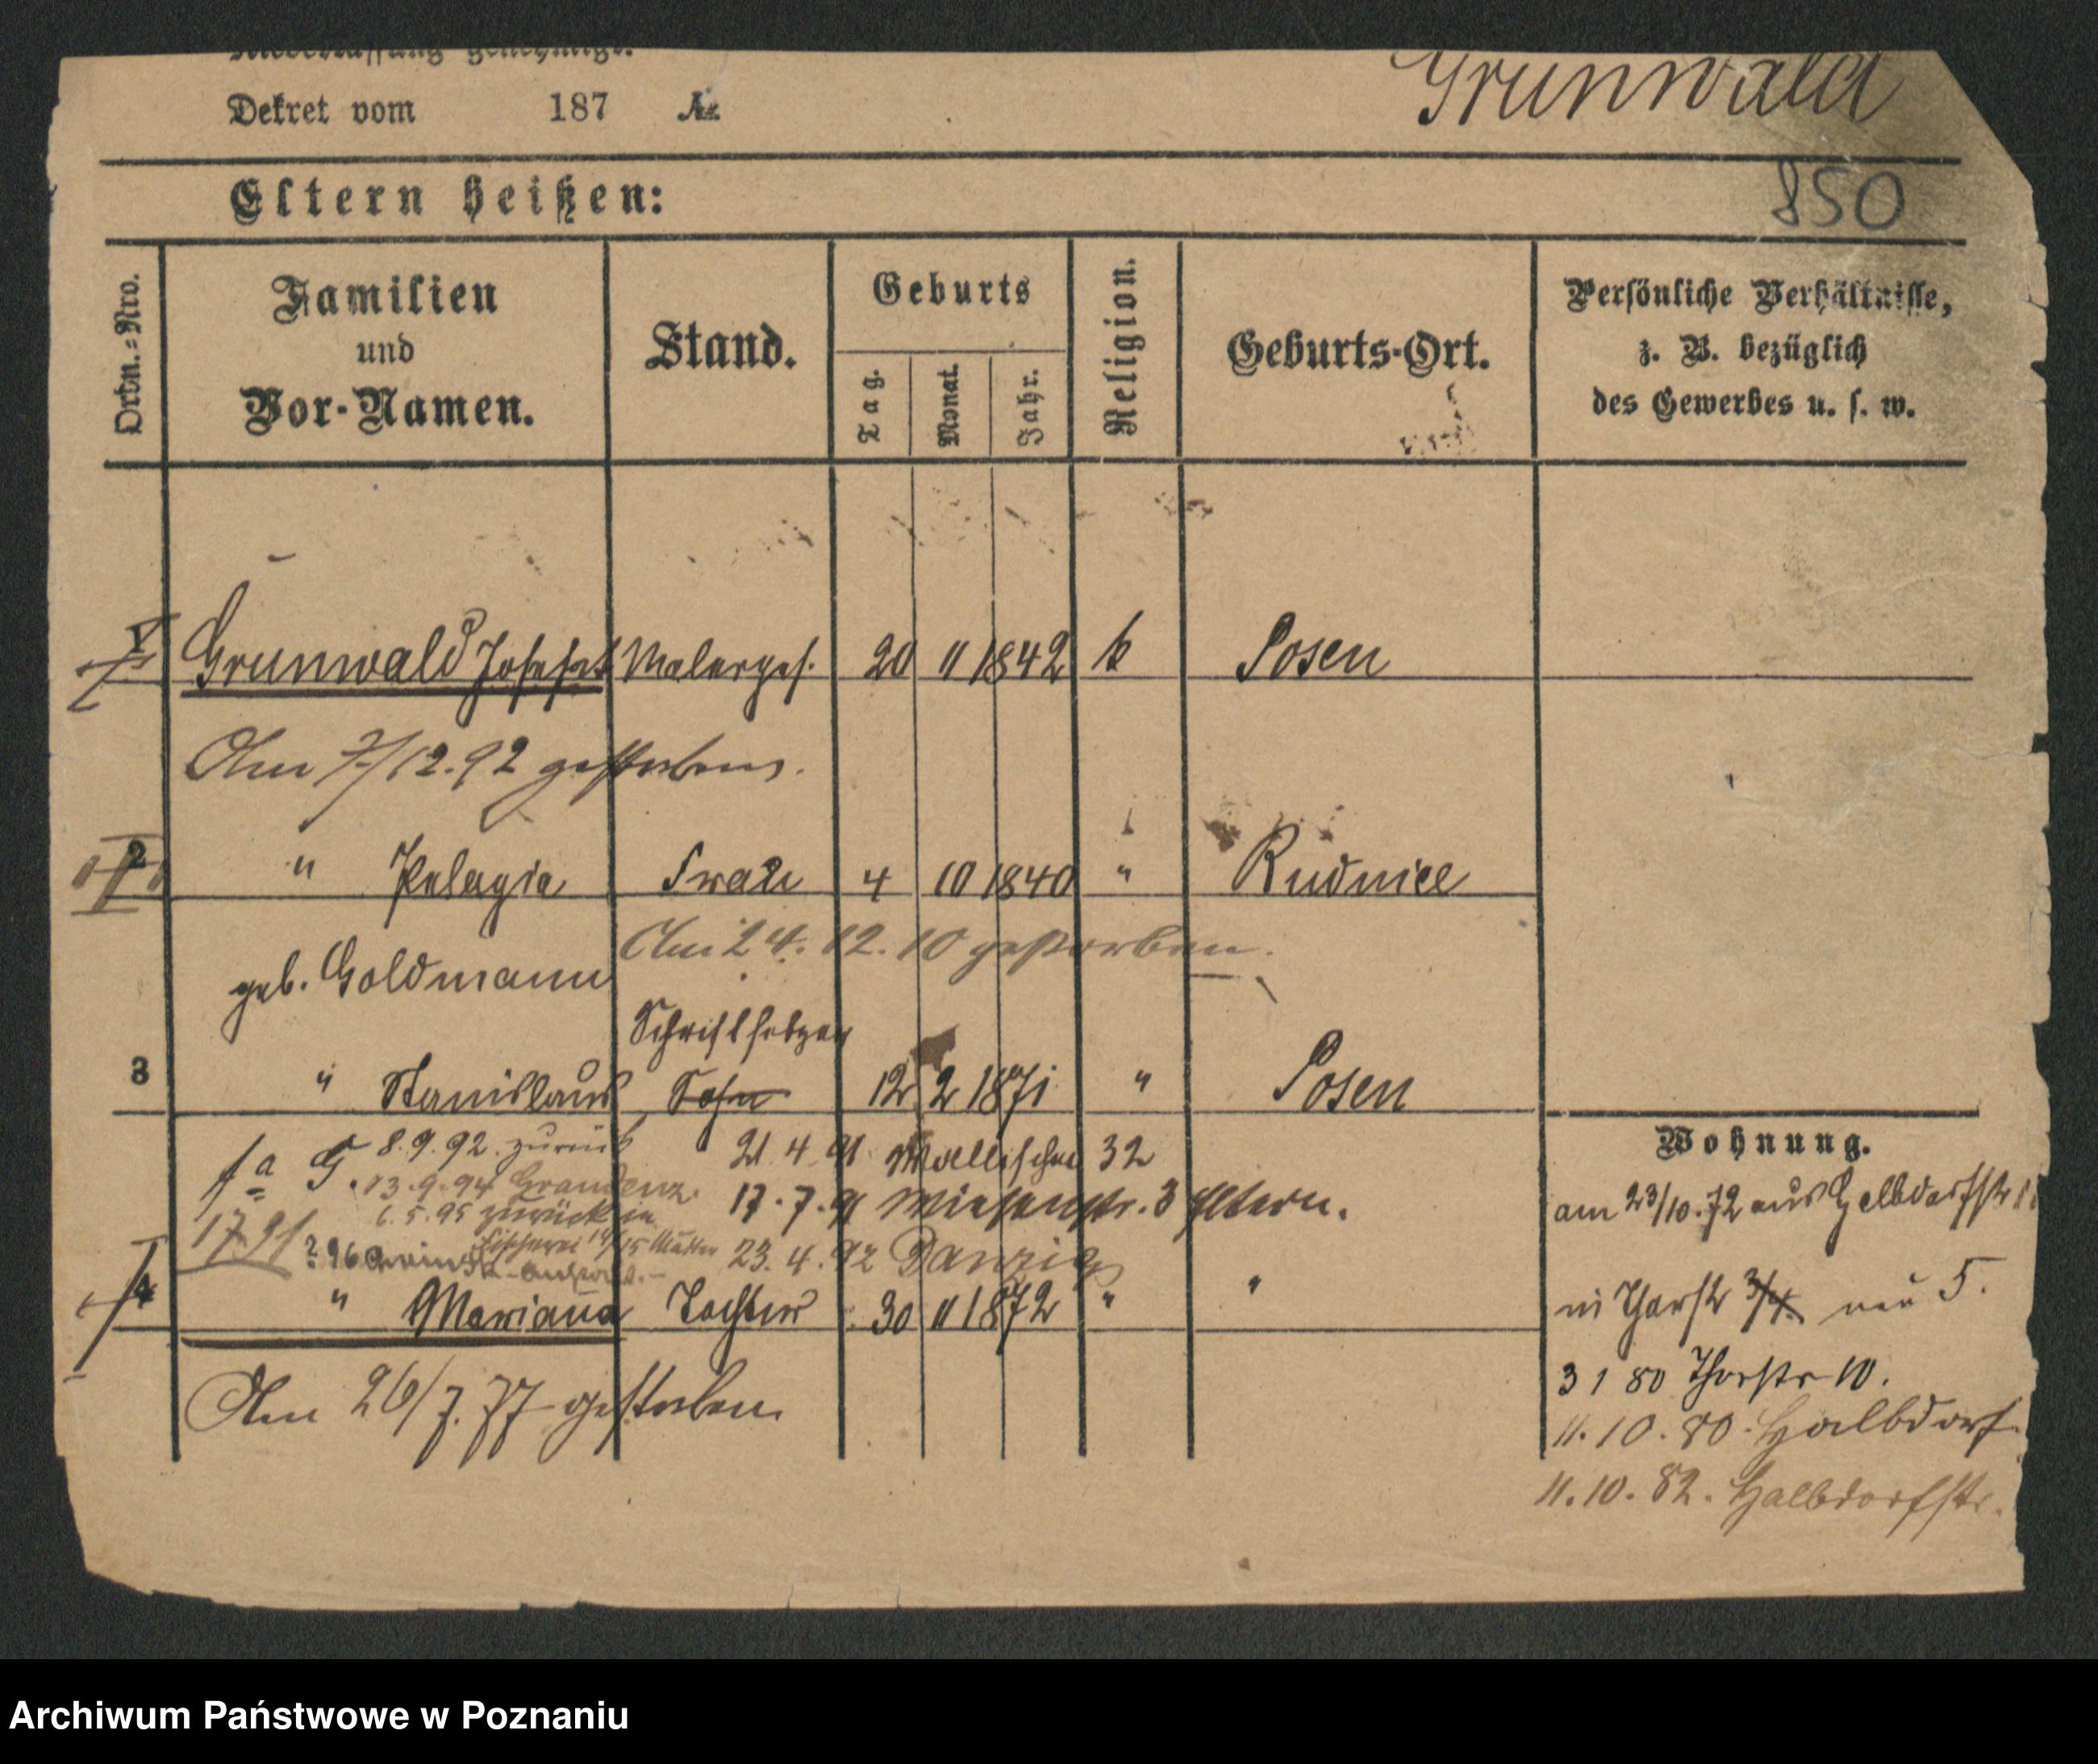 Niederlassung genehmigt.
Grunwald
Dekret vom 187 №
850
Eltern heißen:
Ordn.=Nro.
Familien
und
Vor-Namen.
Stand.
Geburts
Tag.
Monat.
Jahr.
Religion.
Geburts-Ort.
Persönliche Verhältnisse,
z. B. bezüglich
des Gewerbes u. s. w.
1 Grunwald Joseph Malerges. 20 11 1842 k Posen
Am 7/12.92 gestorben.
2 " Pelagia Frau 4 10 1840 " Rudnice
Am 24.12.10 gestorben.
geb. Goldmann
Schriftsetzer
3 " Stanislaus Sohn 12 2 1871 " Posen
8.9.92. zurück 21.4.91 Wallischei 32
13.9.94 Graudenz. 17.7.91 Wiesenstr. 3 Eltern.
6.5.95 zurück in
Fischerei 14/15 Mutter 23.4.92 Danzig
4 " Mariana Tochter 30 11 1872 " "
Am 26/7.77 gestorben
Wohnung.
am 23/10.72 aus Halbdorfstr
Thorstr 3/4 neu 5.
3 1 80 Thorstr 10.
11.10.80. Halbdorf
11.10.82. Halbdorfstr.
Archiwum Państwowe w Poznaniu